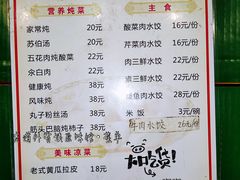 营养炖菜
家常炖 20元
苏伯汤 20元
五花肉炖酸菜 22元
汆白肉 22元
健康炖 38元
风味炖 38元
丸子粉丝汤 35元
筋头巴脑炖柿子 38元
美味凉菜
老式黄瓜拉皮 18元
主食
酸菜肉水饺 16元/份
芹菜肉水饺 16元/份
肉三鲜水饺 22元/份
素三鲜水饺 22元/份
鱼肉水饺 28元/份
米饭 3元/碗
牛肉水饺 26元/份
吃货!